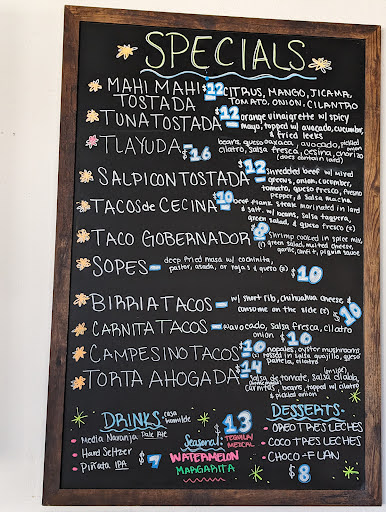 SPECIALS
MAHI MAHI TOSTADA - $12 CITRUS, MANGO, JICAMA,
TOMATO, ONION, CILANTRO
TUNA TOSTADA - $12 orange vinaigrette w/ spicy
mayo, topped w/ avocado, cucumber,
& fried leeks
TLAYUDA - $16 beans, queso oaxaca, avocado, pickled onion
cilatro, salsa fresca, cesina, chorizo
(does contain lard)
SALPICON TOSTADA - $12 shredded beef w/ mixed
greens, onion, cucumber,
tomato, queso fresco, fresno
pepper, & salsa macha
TACOS de CECINA - $10 beef flank steak marinated in lard
& salt. w/ beans, salsa taquera,
green salad, & queso fresco (2)
TACO GOBERNADOR - $8 shrimp cooked in spice mix,
(1) green salad, melted cheese,
garlic, chnft, piquin sauce
SOPES - deep fried masa w/ cochinita,
pastor, asada, or rajas & queso (2) $10
BIRRIA TACOS - w/ short rib, chihuahua cheese &
consume on the side (3) $10
CARNITA TACOS - w/avocado, salsa fresca, cilatro
onion $10
CAMPESINO TACOS - $10 nopales, oyster mushrooms
(2) tossed in salsa guajillo, queso
panela, cilatro
TORTA AHOGADA - $14 salsa de tomate, salsa cibola,
carnitas, beans, topped w/ cilatro
& pickled onion
DRINKS casa humilde
- Media Naranja Pale Ale
- Hard Seltzer
- Piñata IPA
$7
Seasonal: $13 TEQUILA/
MEZCAL
WATERMELON
MARGARITA
DESSERTS-
- OREO TRES LECHES
- COCO TRES LECHES
- CHOCO-FLAN
$8